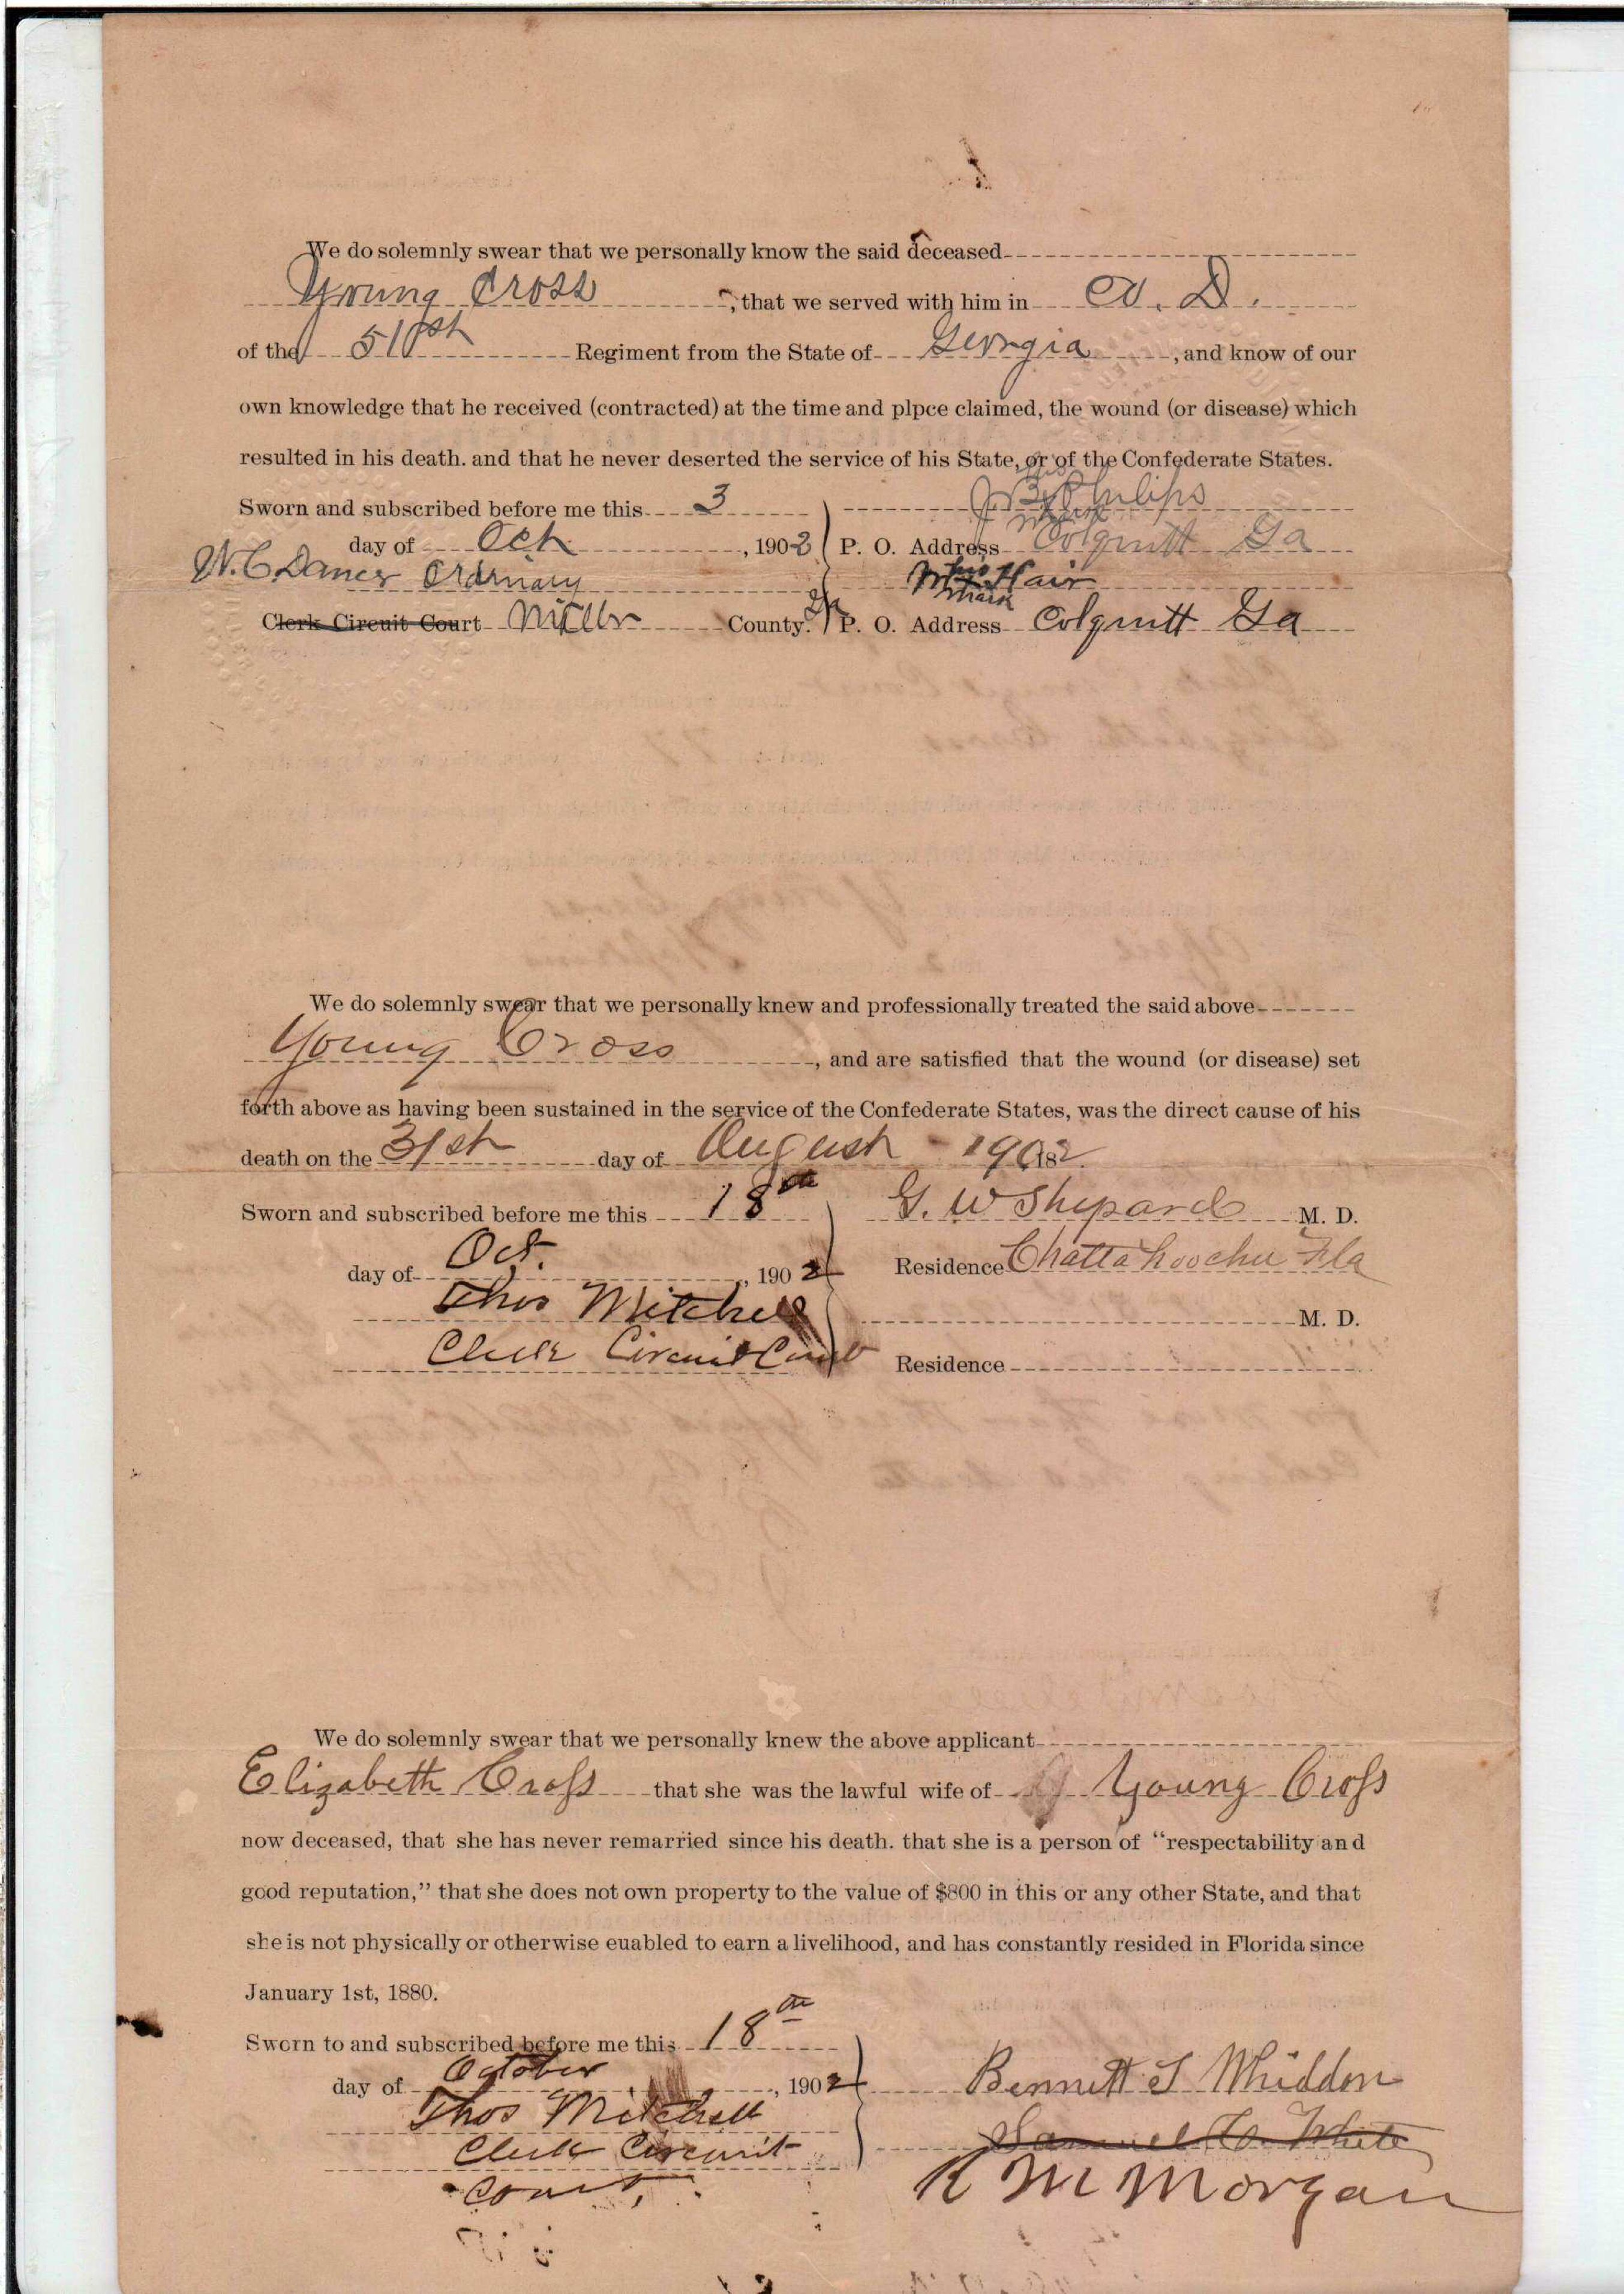 We do solemnly swear that we personally know the said deceased
Young Cross, that we served with him in Co. D.
of the 51st Regiment from the State of Georgia, and know of our
own knowledge that he received (contracted) at the time and plpce claimed, the wound (or disease) which
resulted in his death. and that he never deserted the service of his State, or of the Confederate States.
Sworn and subscribed before me this 3
J. B. Philips
his mark
day of Oct, 1902
P. O. Address Colquitt Ga
W. C. Dancer Ordinary
Hair
his mark
Clerk Circuit Court Miller County. Ga
P. O. Address Colquitt Ga
We do solemnly swear that we personally knew and professionally treated the said above
Young Cross, and are satisfied that the wound (or disease) set
forth above as having been sustained in the service of the Confederate States, was the direct cause of his
death on the 31st day of August 1902 18
Sworn and subscribed before me this 18th
G. W Shepard M. D.
day of Oct. 1902
Residence Chattahoochee Fla
Thos Mitchell
M. D.
Clerk Circuit Court
Residence
We do solemnly swear that we personally knew the above applicant
Elizabeth Cross that she was the lawful wife of Young Cross
now deceased, that she has never remarried since his death. that she is a person of “respectability and
good reputation,” that she does not own property to the value of $800 in this or any other State, and that
she is not physically or otherwise euabled to earn a livelihood, and has constantly resided in Florida since
January 1st, 1880.
Sworn to and subscribed before me this 18th
day of October, 1902
Bennett S Whiddon
Thos Mitchell
Samuel White
Clerk Circuit
R M Morgan
Court,